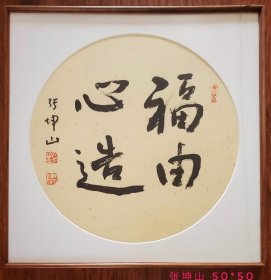 福由
心造
张坤山
张坤山 50*50